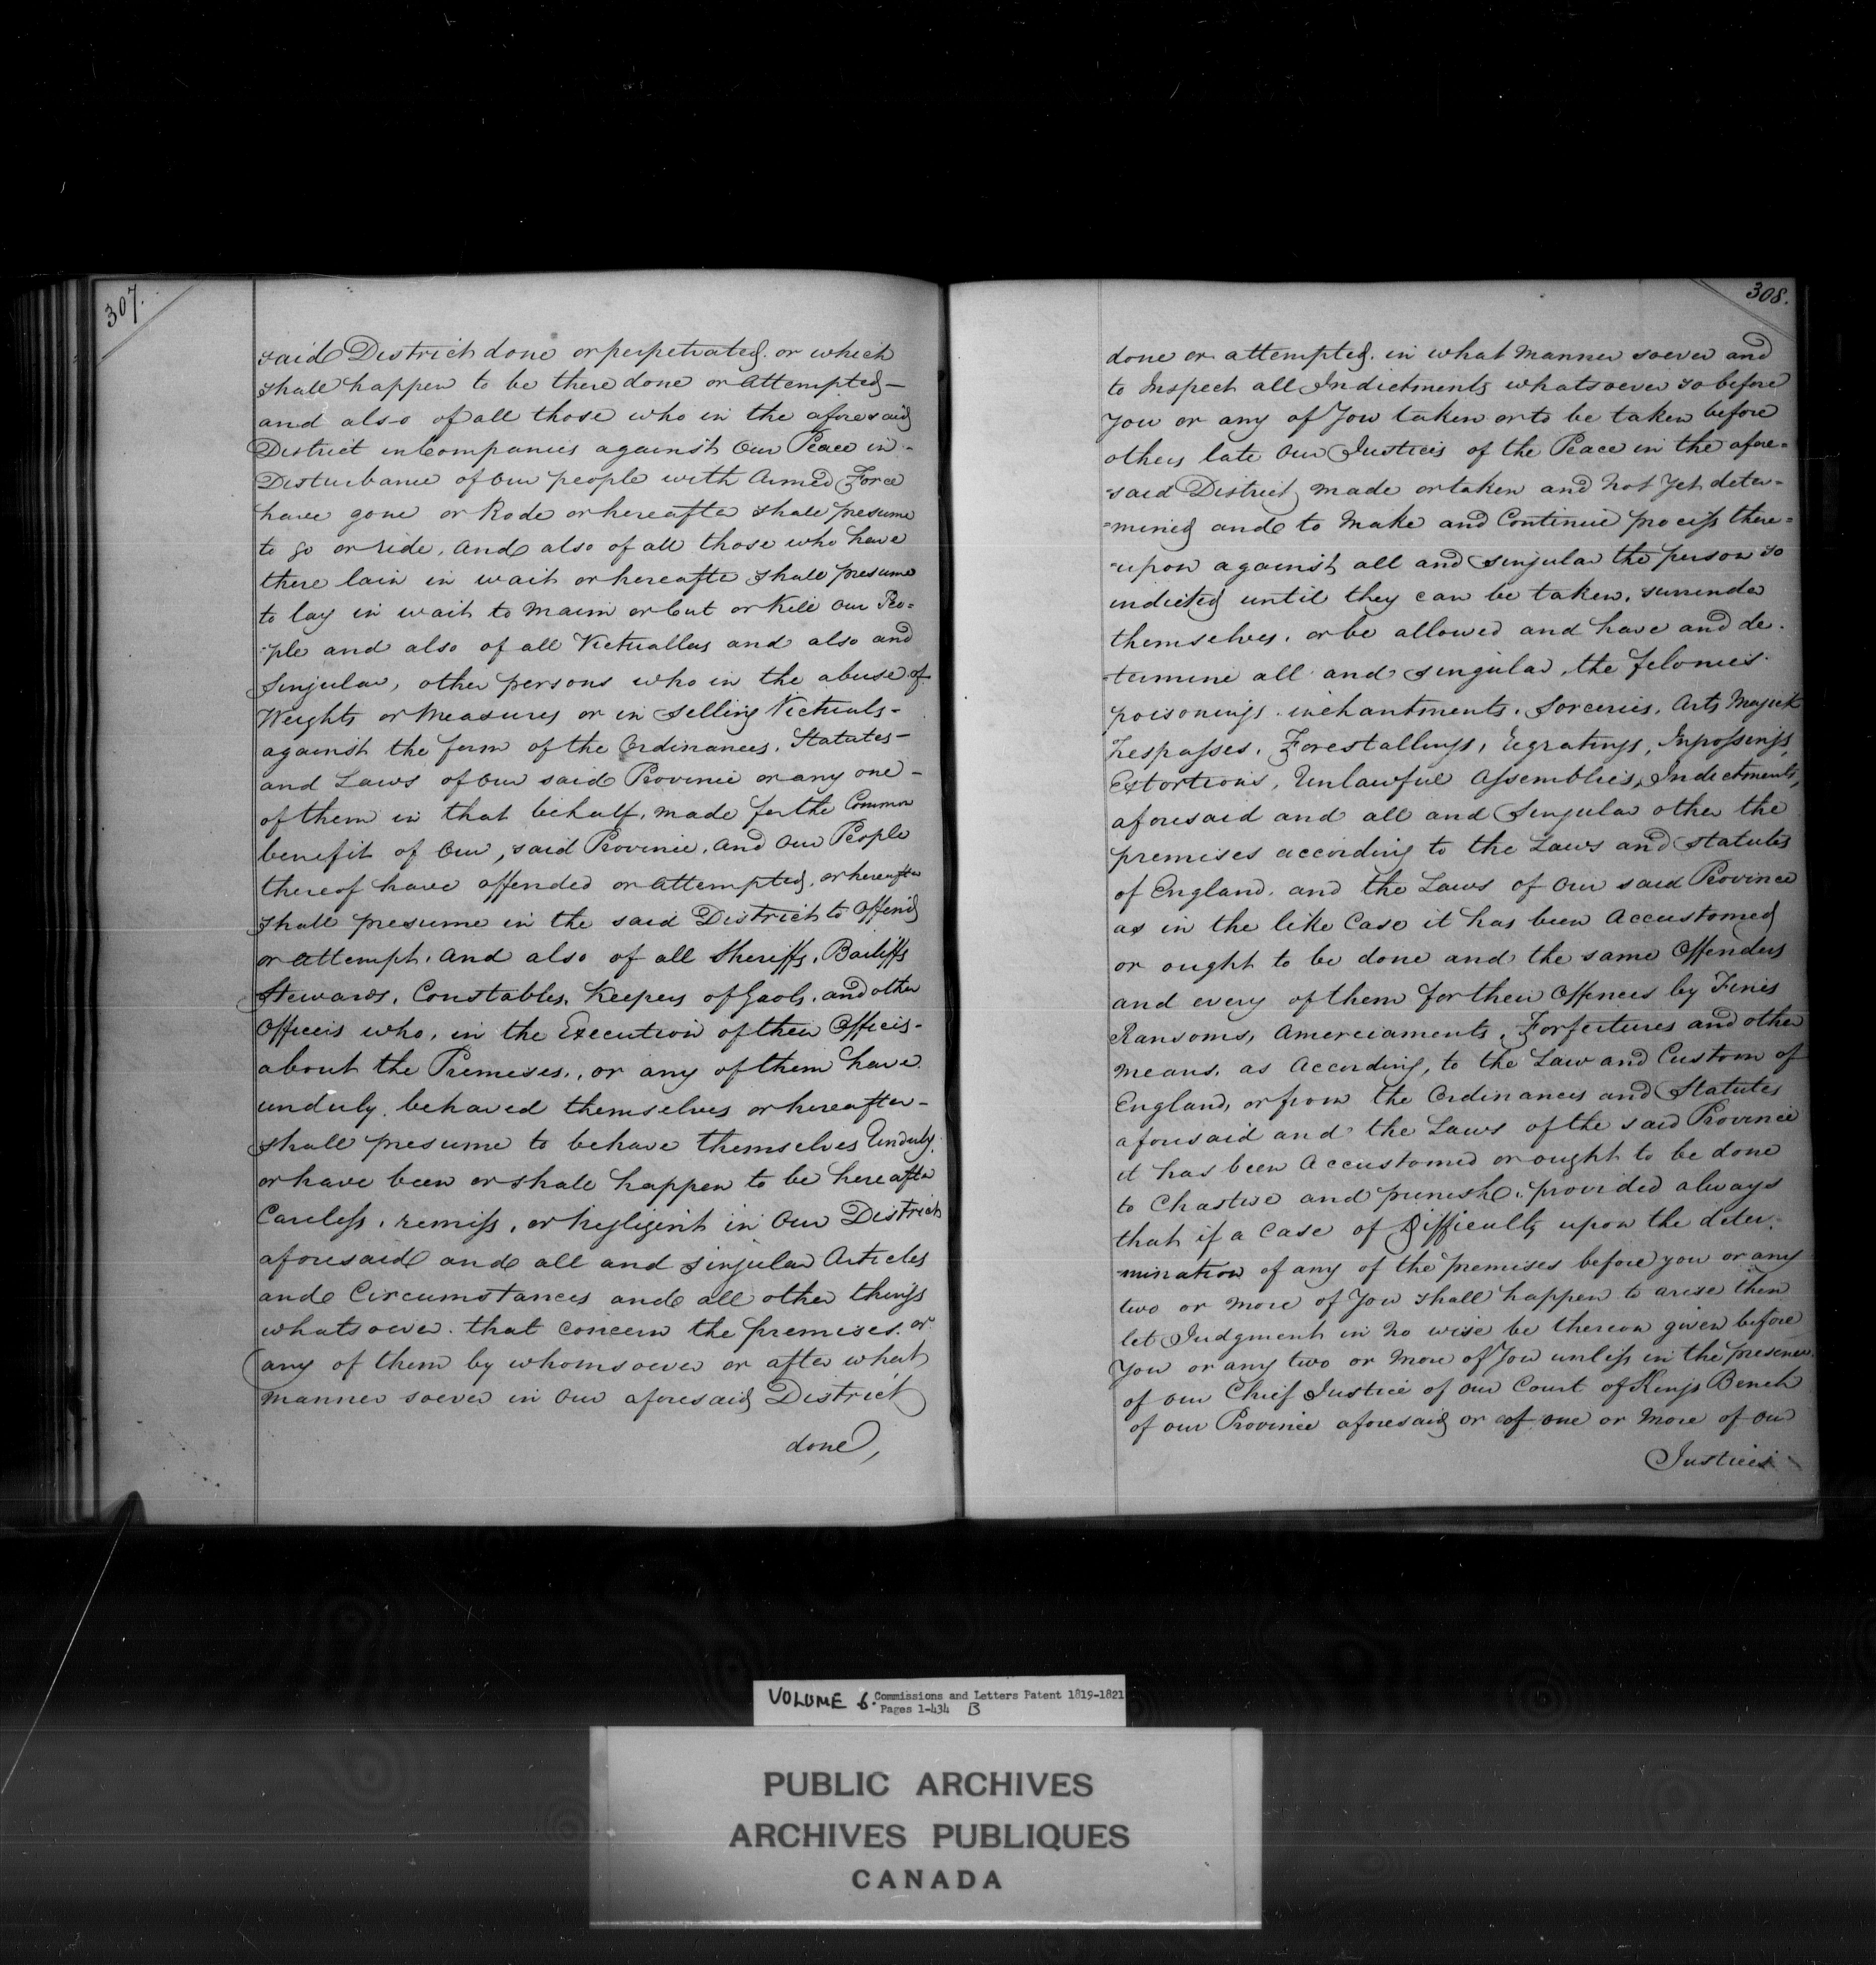 307.
said District done or perpetrated. or which
shall happen to be there done or attempted—
and also of all those who in the aforesaid
District in Companies against Our Peace in-
Disturbance of Our people with Armed Force
have gone or Rode or hereafter shall presume
to go or ride, And also of all those who have
there lain in wait or hereafter shall presume
to lay in wait to maim or Cut or Kill Our Peo=
-ple and also of all Victuallers and also and
Singular, other persons who in the abuse of
Weights or Measures or in Selling Victuals-
against the form of the Ordinances, Statutes-
and Laws of Our said Province or any one-
of them in that behalf, made for the Common
benefit of Our, said Province, And Our People
thereof have offended or attempted, or hereafter
shall presume in the said District to Offend
or attempt. And also of all Sheriffs, Bailiffs
Stewards, Constables, Keepers of Gaols, and other
Officers who, in the Execution of their Offices-
about the Premises, or any of them have
unduly behaved themselves or hereafter-
shall presume to behave themselves Unduly.
or have been or shall happen to be hereafter
Careless, remiss, or Negligent in Our District
aforesaid and all and singular Articles
and Circumstances and all other things
whatsoever that concern the premises. or
any of them by whomsoever or after what
manner soever in Our aforesaid District
done,
308.
done or attempted, in what Manner soever and
to Inspect all Indictments whatsoever so before
You or any of You taken or to be taken before
others late Our Justices of the Peace in the afore=
-said District made or taken and not Yet deter=
=mined and to Make and Continue process there=
-upon against all and singular the person so
indicted until they can be taken, surrender
themselves, or be allowed and have and de-
-termine all and singular, the felonies.
poisonings. inchantments, Sorceries, Arts Magick
Trespasses, Forestallings, Regratings, Inpossings,
Extortions, Unlawful Assemblies, Indictments,
aforesaid and all and Singular other the
premises according to the Laws and statutes
of England, and the Laws of Our said Province
as in the like Case it has been Accustomed
or ought to be done and the same Offenders
and every of them for their Offences by Fines
Ransoms, Amerciaments, Forfeitures and other
means, as According, to the Law and Custom of
England, or from the Ordinances and Statutes
aforesaid and the Laws of the said Province
it has been Accustomed or ought to be done
to Chastise and punish. provided always
that if a Case of Difficulty upon the deter-
-mination of any of the premises before you or any
two or more of You shall happen to arise then
let Judgment in no wise be thereon given before
You or any two or more of You unless in the presence
of our Chief Justice of our Court of Kings Bench
of our Province aforesaid or of one or More of our
Justices
VOLUME 6. Commissions and Letters Patent 1819-1821
Pages 1-434 B
PUBLIC ARCHIVES
ARCHIVES PUBLIQUES
CANADA